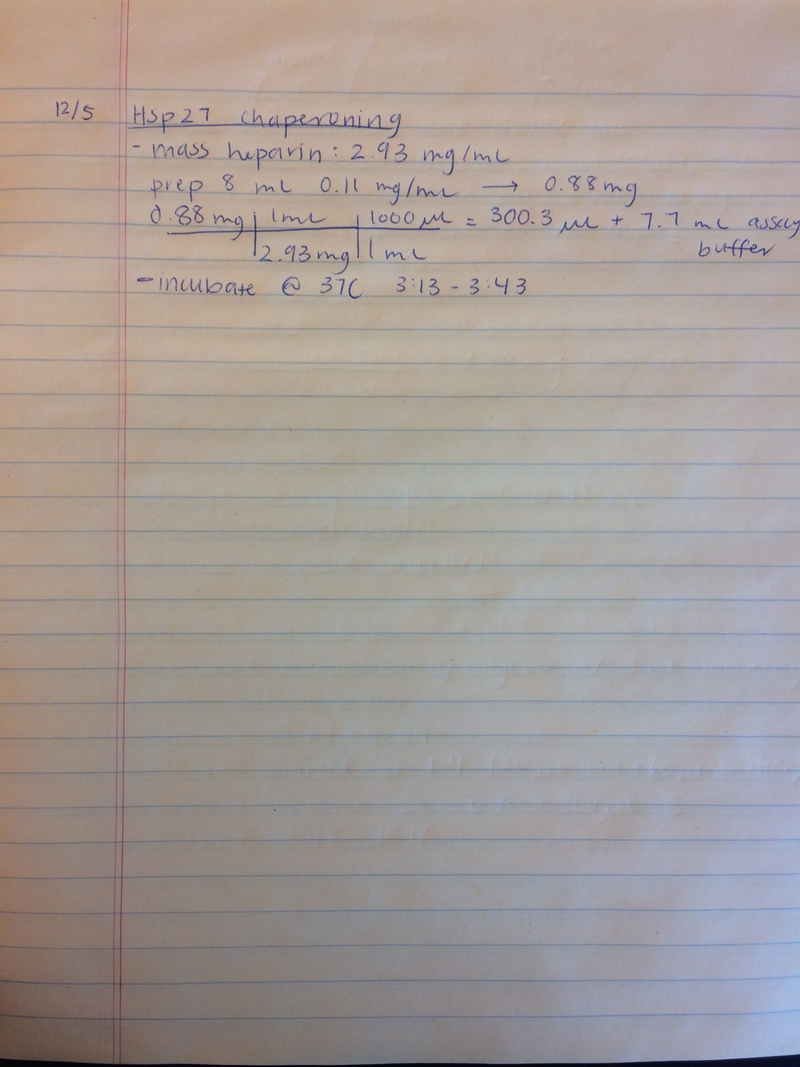 12/5 Hsp27 chaperoning
- mass heparin: 2.93 mg/mL
prep 8 mL 0.11 mg/mL → 0.88mg
0.88 mg | 1mL | 1000 μL = 300.3 μL + 7.7 mL assay
2.93mg | 1 mL buffer
- incubate @ 37C 3:13 - 3:43